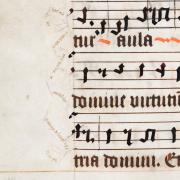 tur aula
domine virtutum
tria domini. Et